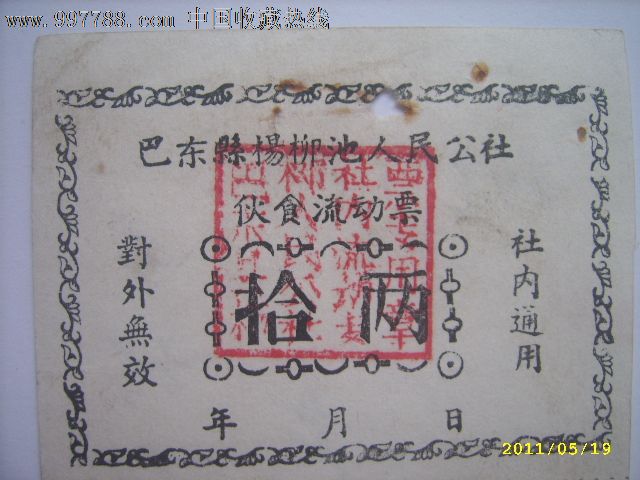 www.997788.com 中国收藏热线
巴东縣楊柳池人民公社
伙食流动票
社内通用
拾两
對外無效
年 月 日
2011/05/19